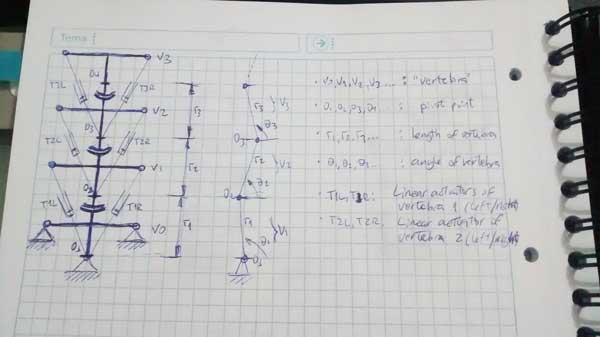 Tema
V3
O4
T3L
T3R
V2
O3
T2L
T2R
V1
O2
T1L
T1R
V0
O1
r3
r2
r1
r3
V3
O3
θ3
r2
V2
O2
θ2
r1
V1
θ1
O1
· V0, V1, V2, V3 ... : "vertebra"
· O1, O2, O3, O4 ... : pivot point
· r1, r2, r3 ... : length of vertebra
· θ1, θ2, θ3 ... : angle of vertebra
· T1L, T1R: Linear actuators of
vertebra 1 (left/right)
· T2L, T2R, Linear actuator of
vertebra 2 (left/right)